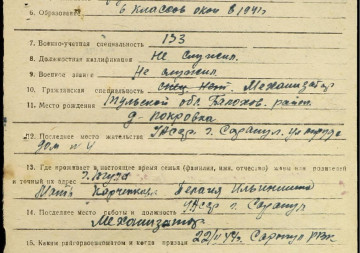 6. Образование 6 классов окон в 1941г
7. Военно-учетная специальность 133
8. Должностная квалификация Не служил.
9. Военное звание Не служил
10. Гражданская специальность спец. нет. Механизатор
11. Место рождения Тульской обл. район.
д Покровка
12. Последнее место жительства УАССР г. Сарапул.
дом № 4
13. Где проживает в настоящее время семья (фамилия, имя, отчество) жены или родителей
и точный их адрес
Мать Пелагия Ильинична
14. Последнее место работы и должность УАССР г. Сарапул
Механизатор
15. Каким райгорвоенкоматом и когда призван 22/II 44г. Сарапул РВК